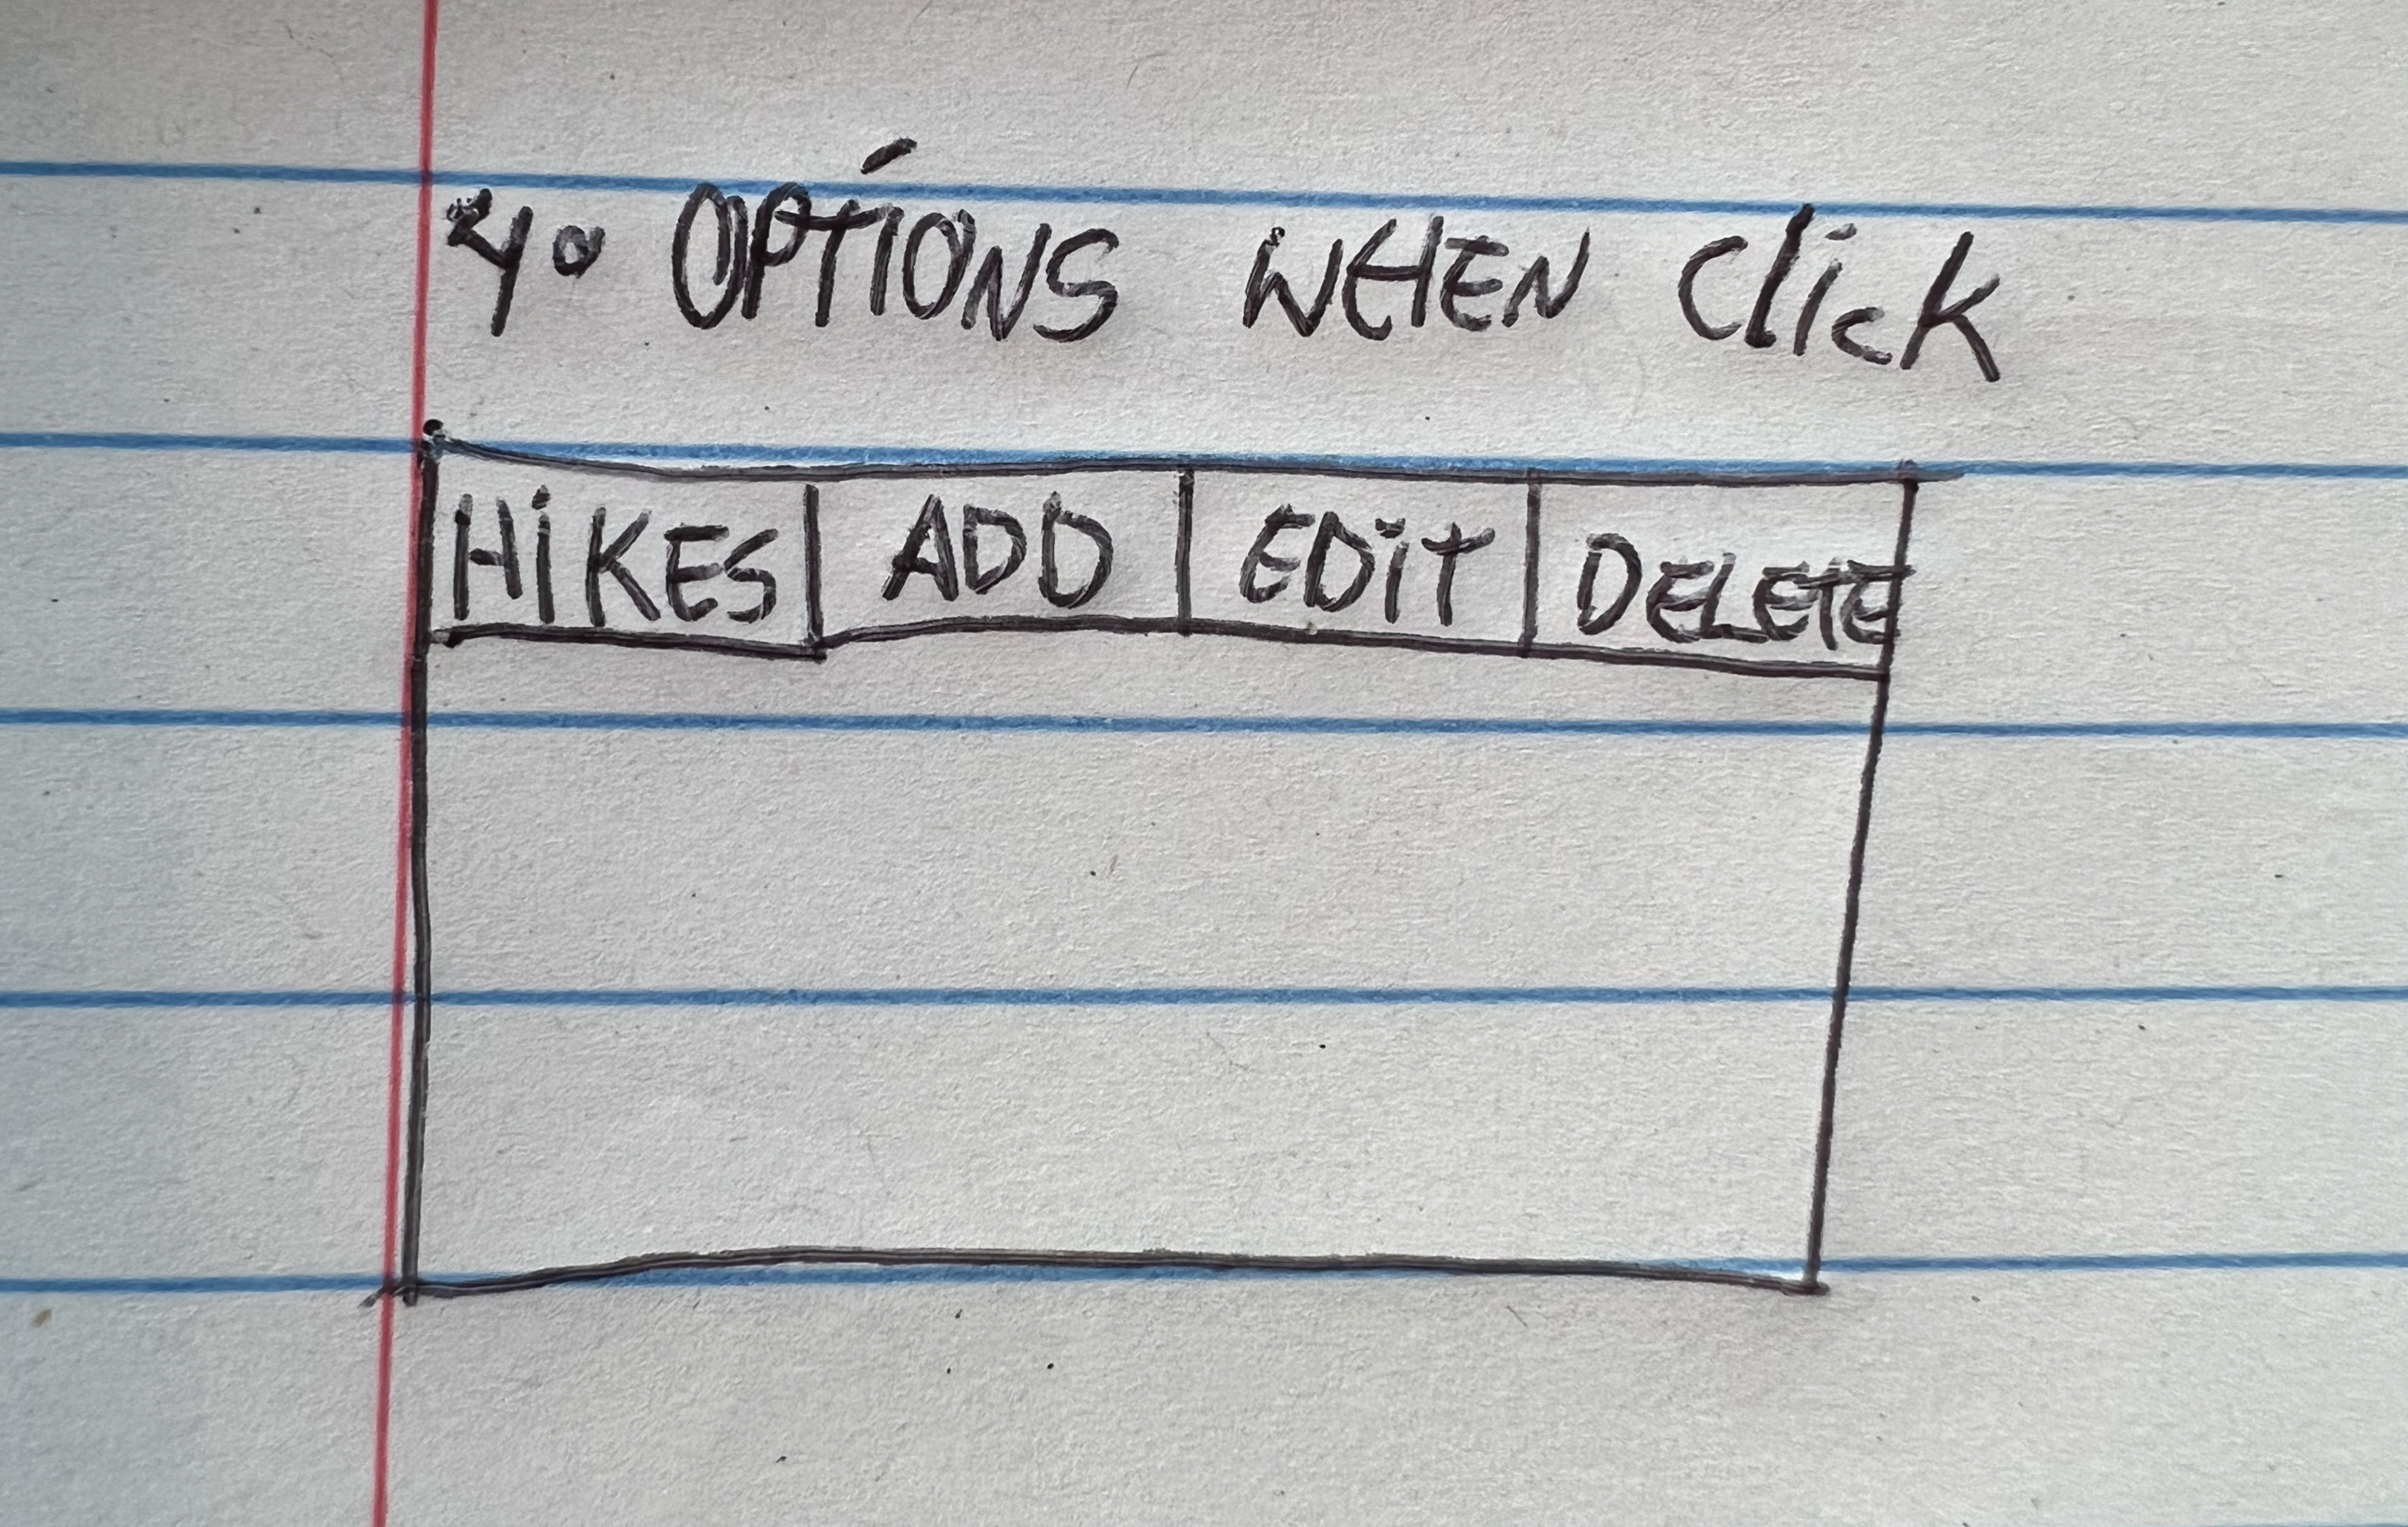 4. OPTIONS WHEN Click
HiKES ADD EDiT DELETE